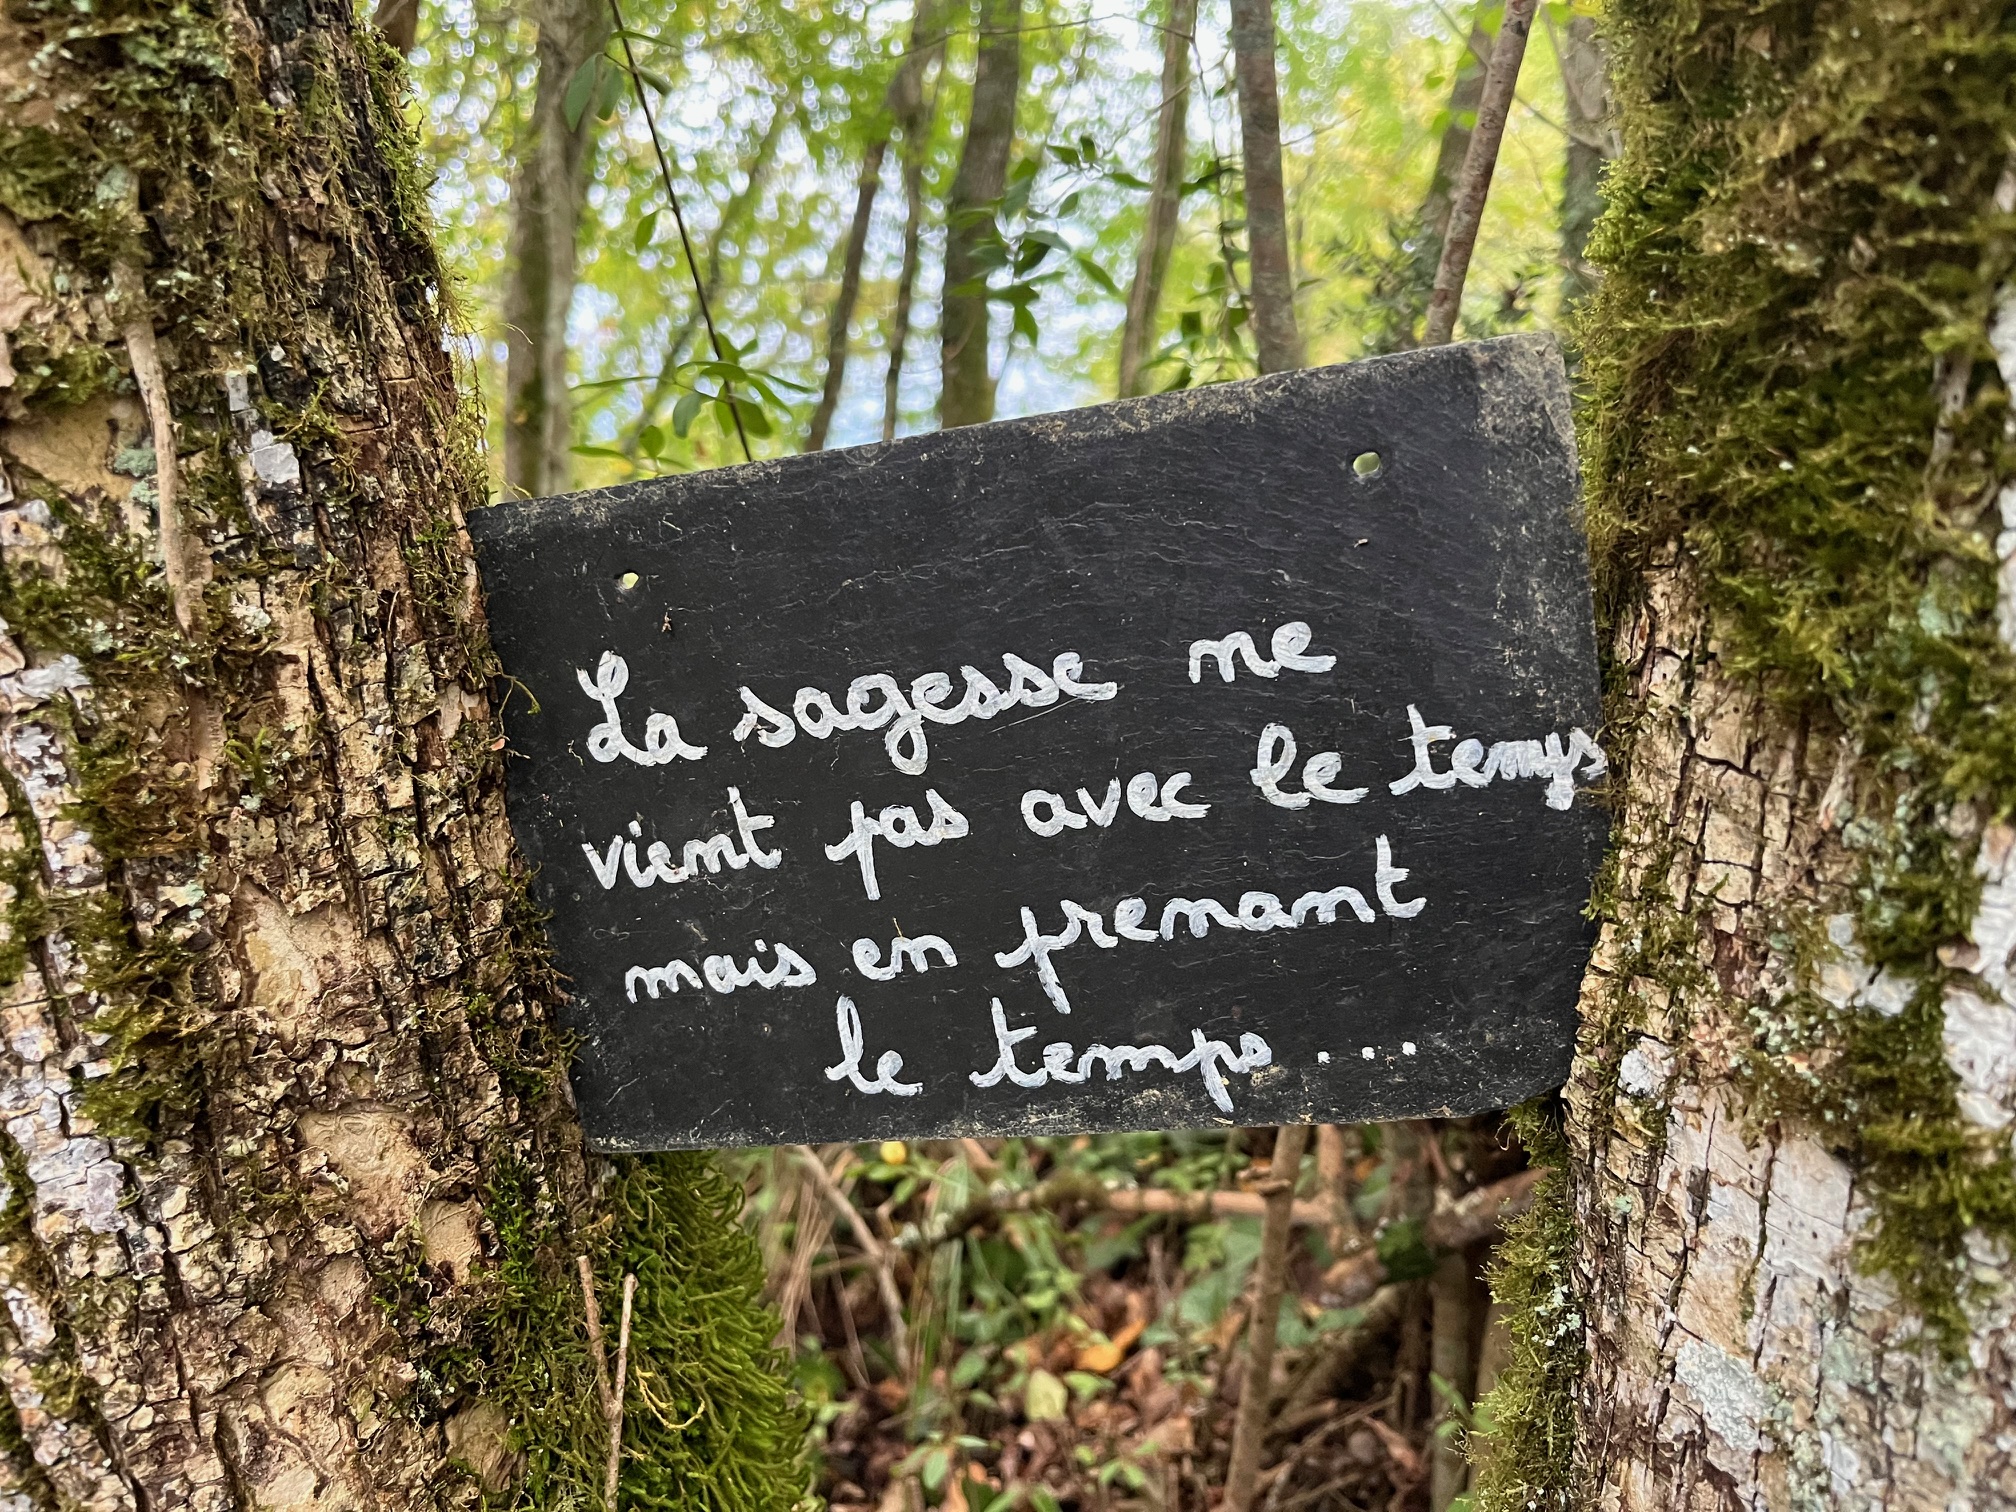 La sagesse ne
vient pas avec le temps
mais en prenant
le temps ....